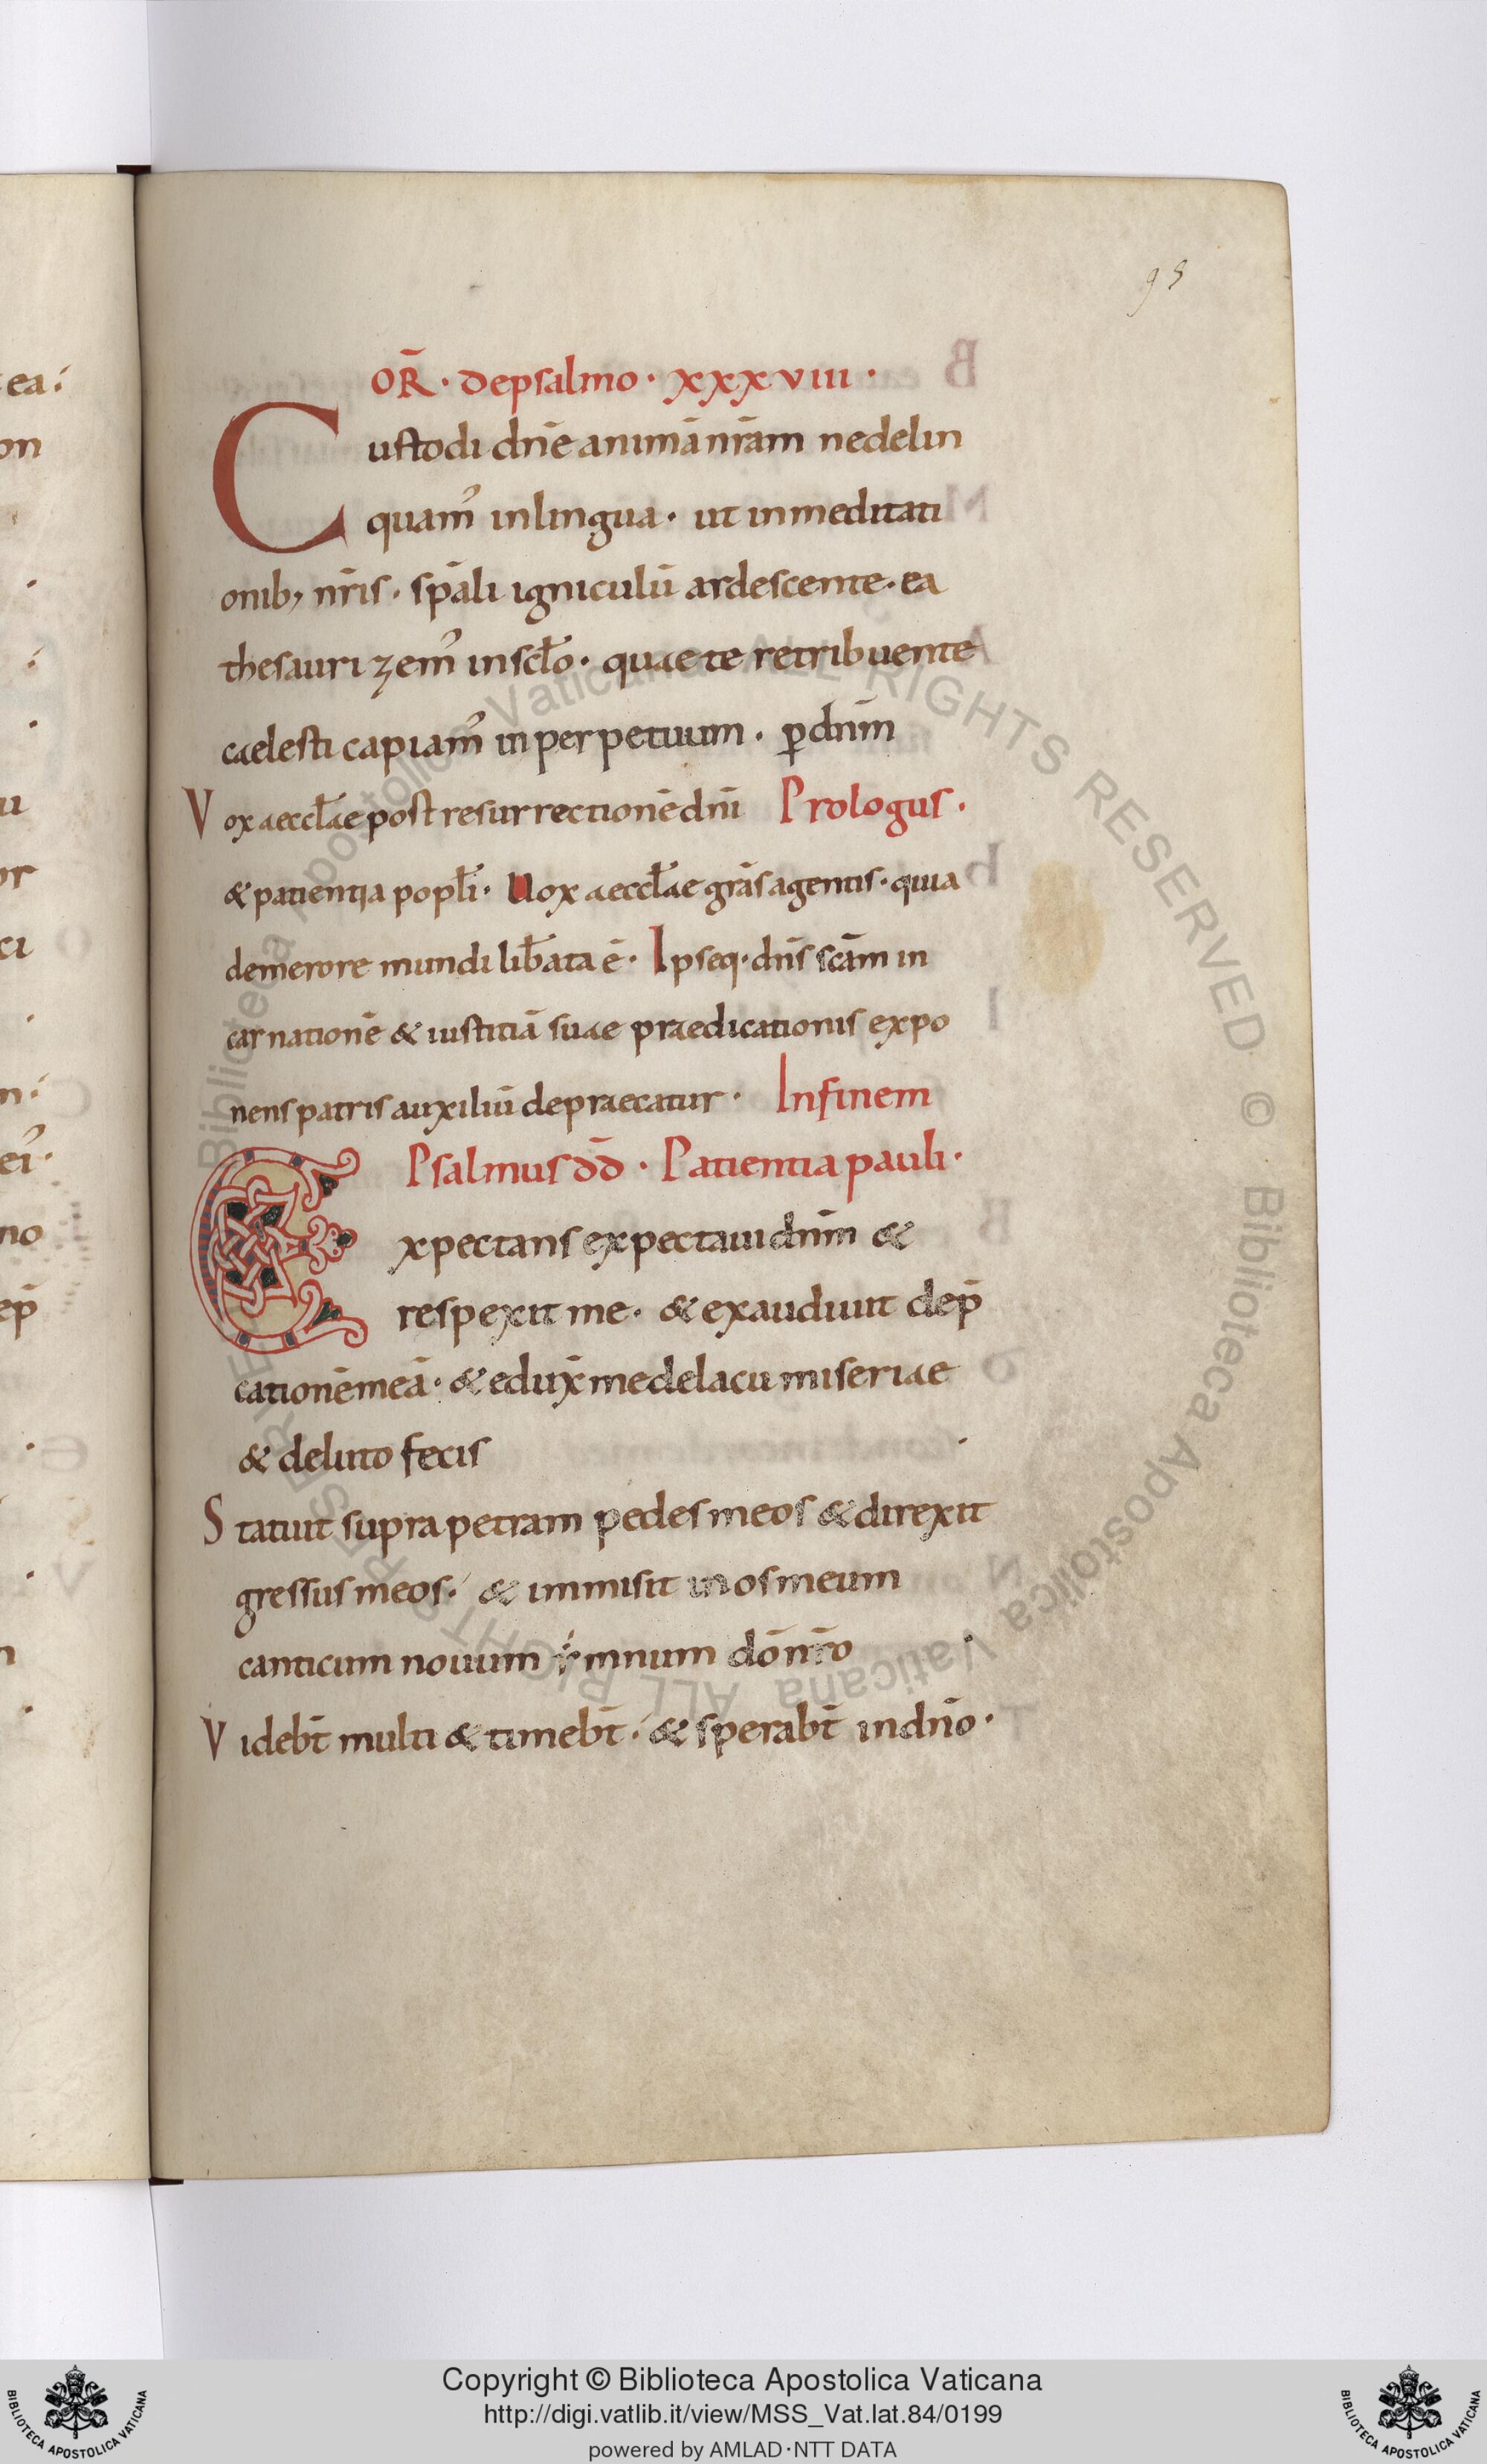 95
OR̄ · depsalmo · xxxviii ·
Custodi dn̄e animā nr̄am nedelin
quam᾽ inlingua · ut inmeditati
onib; nr̄is · sp̄ali igniculū ardescente · ea
thesaurizem᾽ inscl̄o · quae te retribuente
caelesti capiam᾽ inperpetuum · ꝑ dnm̄
Vox aeccl̄ae post resurrectionē dnī Prologus ·
& patientia popl̄i · Uox aeccl̄ae grā̄s agentis · quia
demerore mundi lib̄ata ē · Ipseq · dn̄s sc̄am in
carnationē & iustitiā suae praedicationis expo
nens patris auxiliū depraecatur · Infinem
Psalmus dd̄ · Patientia pauli ·
Expectans expectaui dnm̄ &
respexit me · & exaudiuit dep̄
cationē meā · & edux̄ me delacu miseriae
& deluto fecis
Statuit supra petram pedes meos & direxit
gressus meos ·᾽ & immisit in os meum
canticum nouum ẏmnum dō nr̄o
Videbt̄ multi & timebt̄ ·᾽ & sperabt̄ in dn̄o ·
ea ·᾽
on
u
or
ci
n ·᾽
ei᾽ ·
no
ep̄
Biblioteca Apostolica Vaticana ALL RIGHTS RESERVED © Biblioteca Apostolica Vaticana ALL RIGHTS RESERVED ©
Copyright © Biblioteca Apostolica Vaticana
http://digi.vatlib.it/view/MSS_Vat.lat.84/0199
powered by AMLAD·NTT DATA
BIBLIOTECA APOSTOLICA VATICANA
BIBLIOTECA APOSTOLICA VATICANA